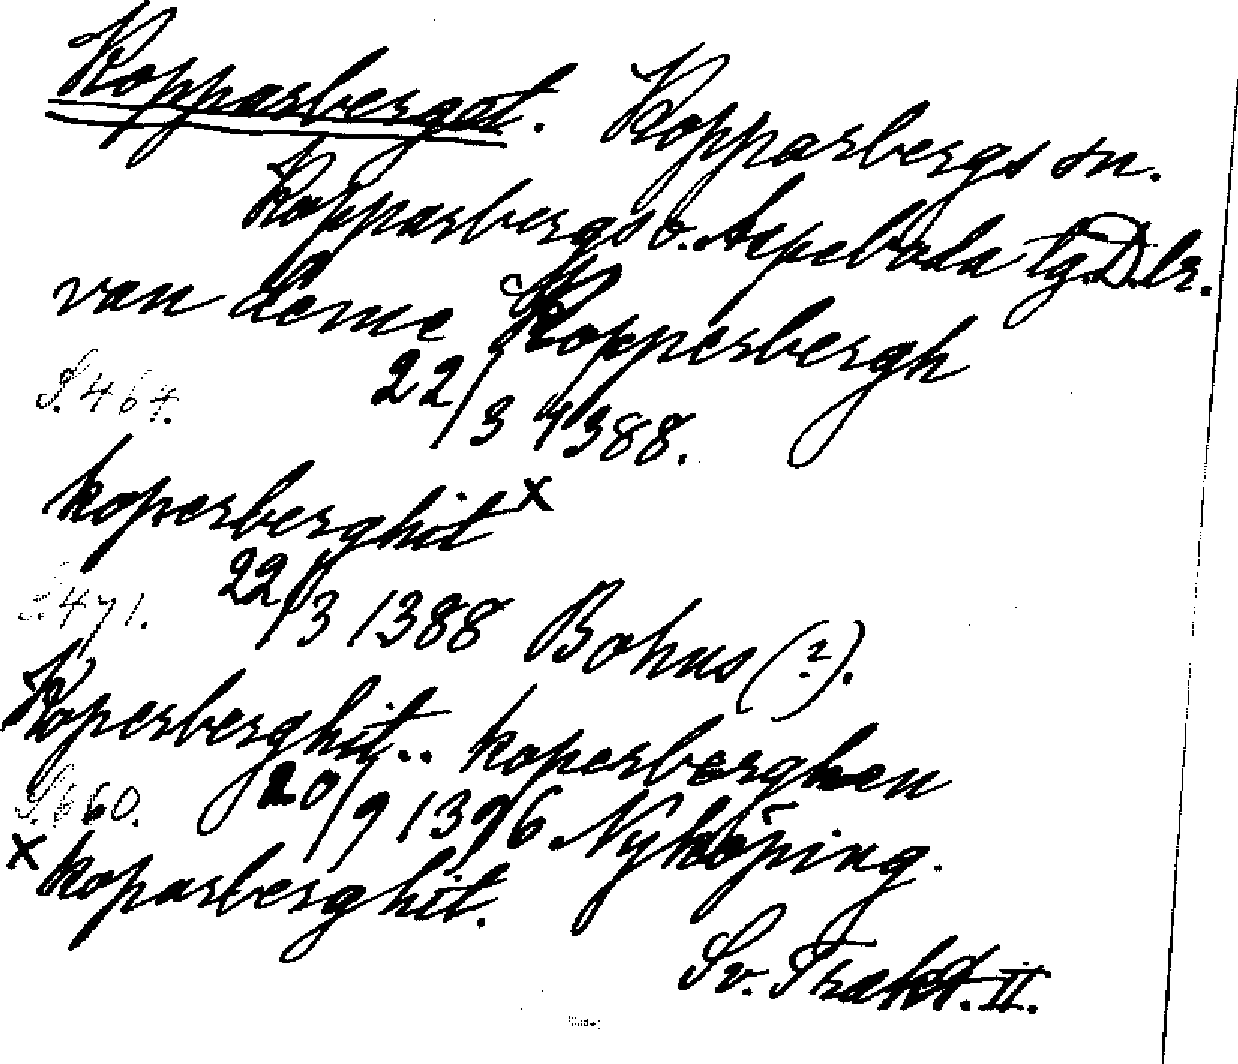 Kopparberget. Kopparbergs sn.
Kopparbergs o. Aspeboda tg. Dlr.
van deme Kopperbergh
S. 464. 22/3 1388.
koperberghit x
S. 471. 22/3 1388 Bohus (?).
Koperberghit .. koperberghen
S. 660. 20/9 1396 Nyköping.
x koparberghit.
Sv. Trakt. II.